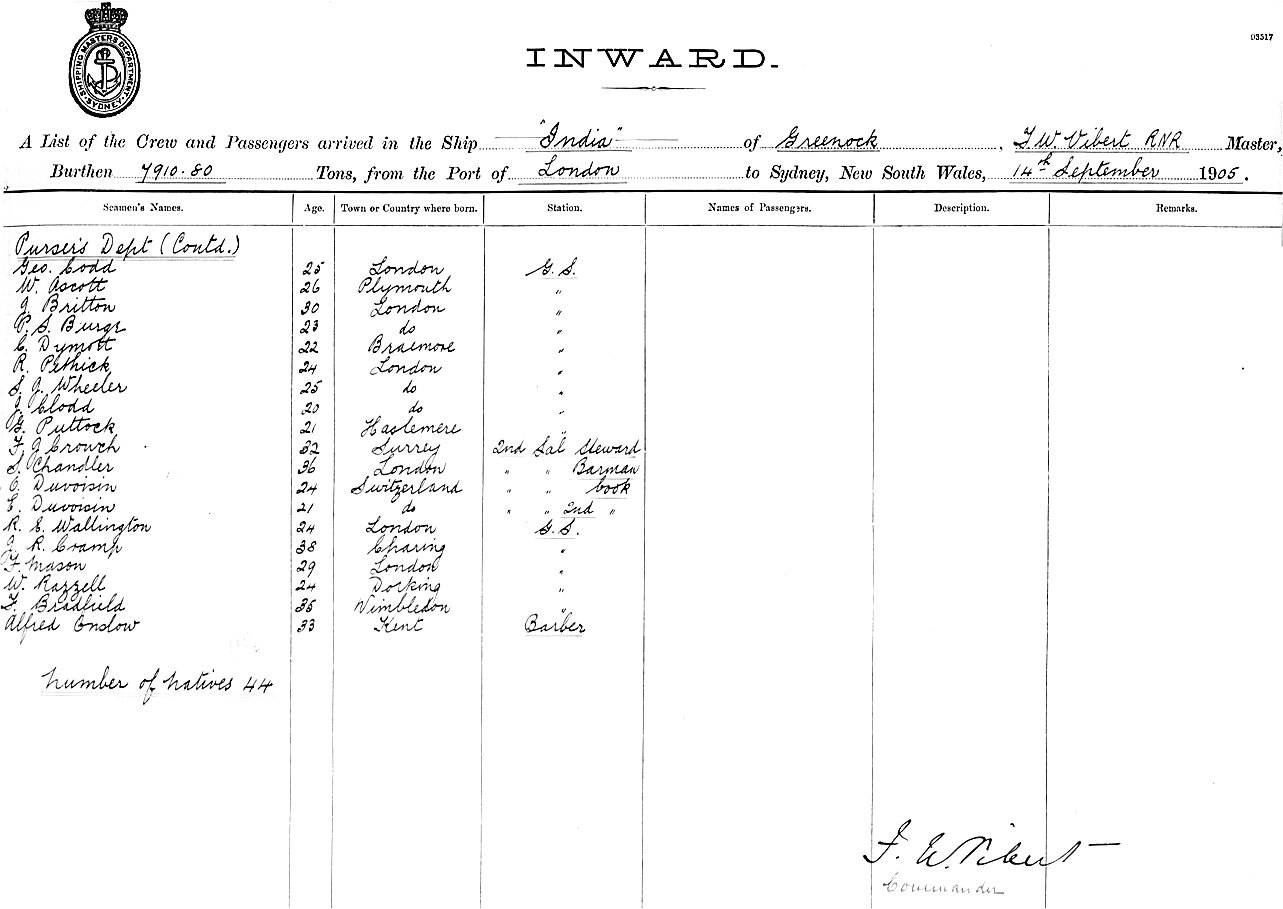 SHIPPING MASTERS DEPARTMENT SYDNEY
03517
INWARD.
A List of the Crew and Passengers arrived in the Ship "India" of Greenock, F W. Vibert RNR Master,
Burthen 7910.80 Tons, from the Port of London to Sydney, New South Wales, 14th September 1905.
Seamen's Names. Age. Town or Country where born. Station. Names of Passengers. Description. Remarks.
Purser's Dept (Contd.)
Geo. Codd 25 London G. S.
W. Ascott 26 Plymouth "
J. Britton 30 London "
P. S. Burge 23 do "
C. Dymott 22 Braemore "
R. Pethick 24 London "
S. J. Wheeler 25 do "
J. Clodd 20 do "
G. Puttock 21 Haslemere "
F. J Crouch 32 Surrey 2nd Sal Steward
S. Chandler 36 London " " Barman
C. Duvoisin 24 Switzerland " " Cook
E. Duvoisin 21 do " " 2nd "
R. E. Wallington 24 London G. S.
J. R. Cramp 38 Charing "
F. Mason 29 London "
W. Razzell 24 Dorking "
F. Bradfield 35 Wimbledon "
Alfred Onslow 33 Kent Barber
Number of Natives 44
F. W. Vibert
Commander